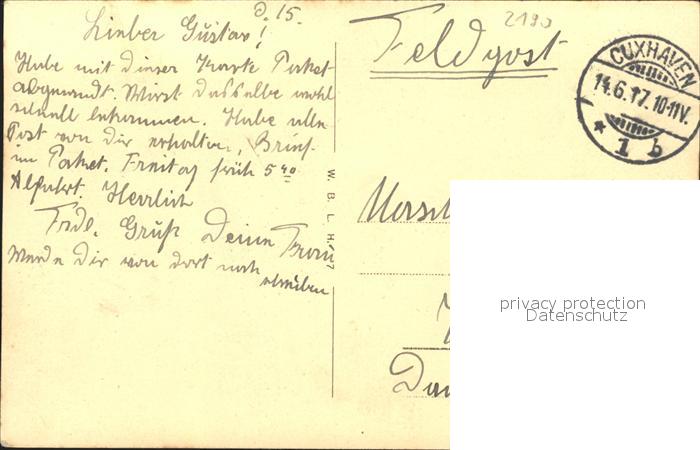 d. 15.
Lieber Gustav!
Habe mit dieser Karte Paket
abgesandt. Wirst dasselbe wohl
schnell bekommen. Habe alle
Post von dir erhalten, Brief
im Paket. Freitag früh 5 40
Abfahrt. Herzlich
Grüß Deine Frau
Werde Dir von dort noch
schreiben
2190
Feldpost
CUXHAVEN
14.6.17.10-11V.
* 1 b
W. B. L. H.
privacy protection
Datenschutz